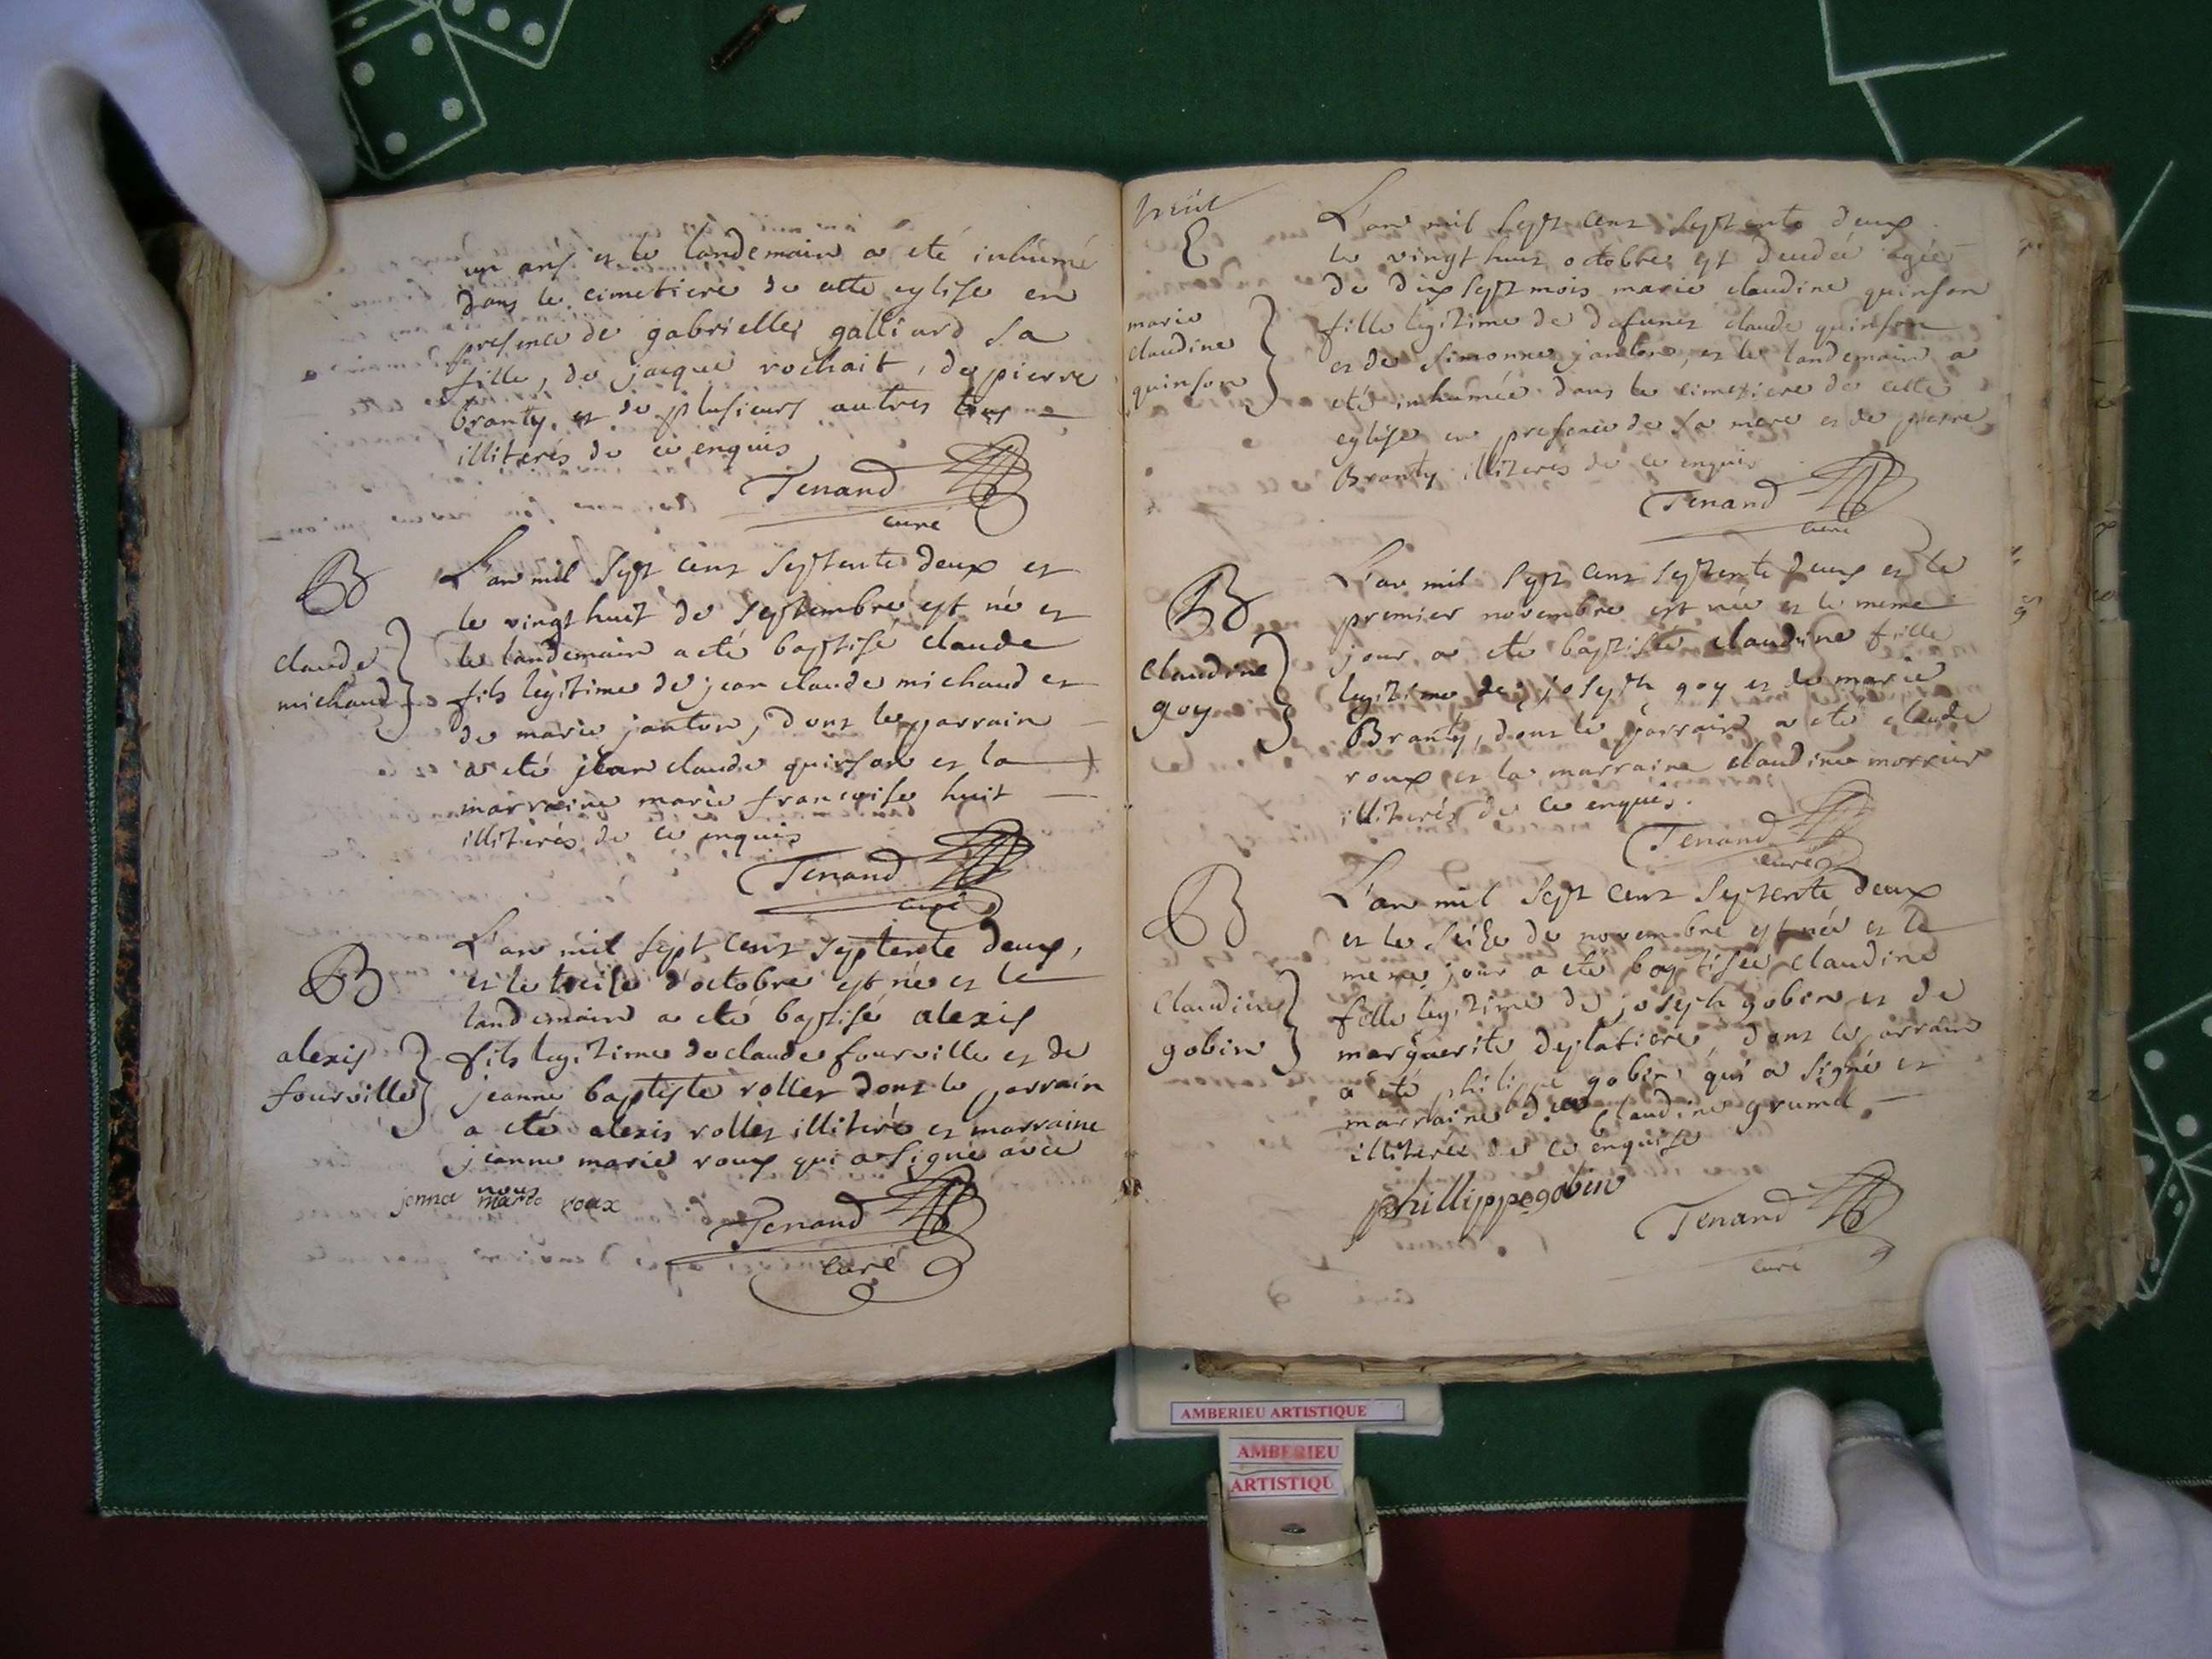 un ans et le landemain a eté inhumé
dans le cimetiere de cette eglise en
presence de gabrielle galliard sa
fille, de jacque rochait, de pierre
branty, et de plusieurs autres tous
illiterés de ce enquis
Tenand
curé
B
claude
michaud
L'an mil sept cent septente deux et
le vingt huit de septembre est né et
le landemain a eté baptisé claude
fils legitime de jean claude michaud et
de marie janton, dont le parrain
a eté jean claude quinson et la
marraine marie francoise huit
illiterés de ce enquis
Tenand
curé
B
alexis
fourville
L'an mil sept cent septente deux,
et le treise d'octobre est né et le
landemain a eté baptisé alexis
fils legitime de claude fourville et de
jeanne baptiste rollet dont le parrain
a eté alexis rollet illiteré et marraine
jeanne marie roux qui a signé avec
nous
jenne marie roux
Tenand
curé
marie
claudine
quinson
L'an mil sept cent septente deux
le vingt huit octobre est decedée agée
de dix sept mois marie claudine quinson
fille legitime de defunct claude quinson
et de simonne janton, et le landemain a
eté inhumée dans le cimetiere de cette
eglise en presence de sa mere et de pierre
Branty illiterés de ce enquis
Tenand
curé
B
claudine
goy
L'an mil sept cent septente deux et le
premier novembre est née et le meme
jour a eté baptisée claudine fille
legitime de joseph goy et de marie
Branty, dont le parrain a eté claude
roux et la marraine claudine morrier
illiterés de ce enquis.
Tenand
curé
B
claudine
gobin
L'an mil sept cent septente deux
et le seize de novembre est née et le
meme jour a eté baptisée claudine
fille legitime de joseph gobin et de
marguerite deplatiere, dont le parrain
a eté philippe gobin qui a signé et
marraine claudine gruma
illiterée de ce enquise
phillippe gobin
Tenand
curé
AMBERIEU ARTISTIQUE
AMBERIEU
ARTISTIQU